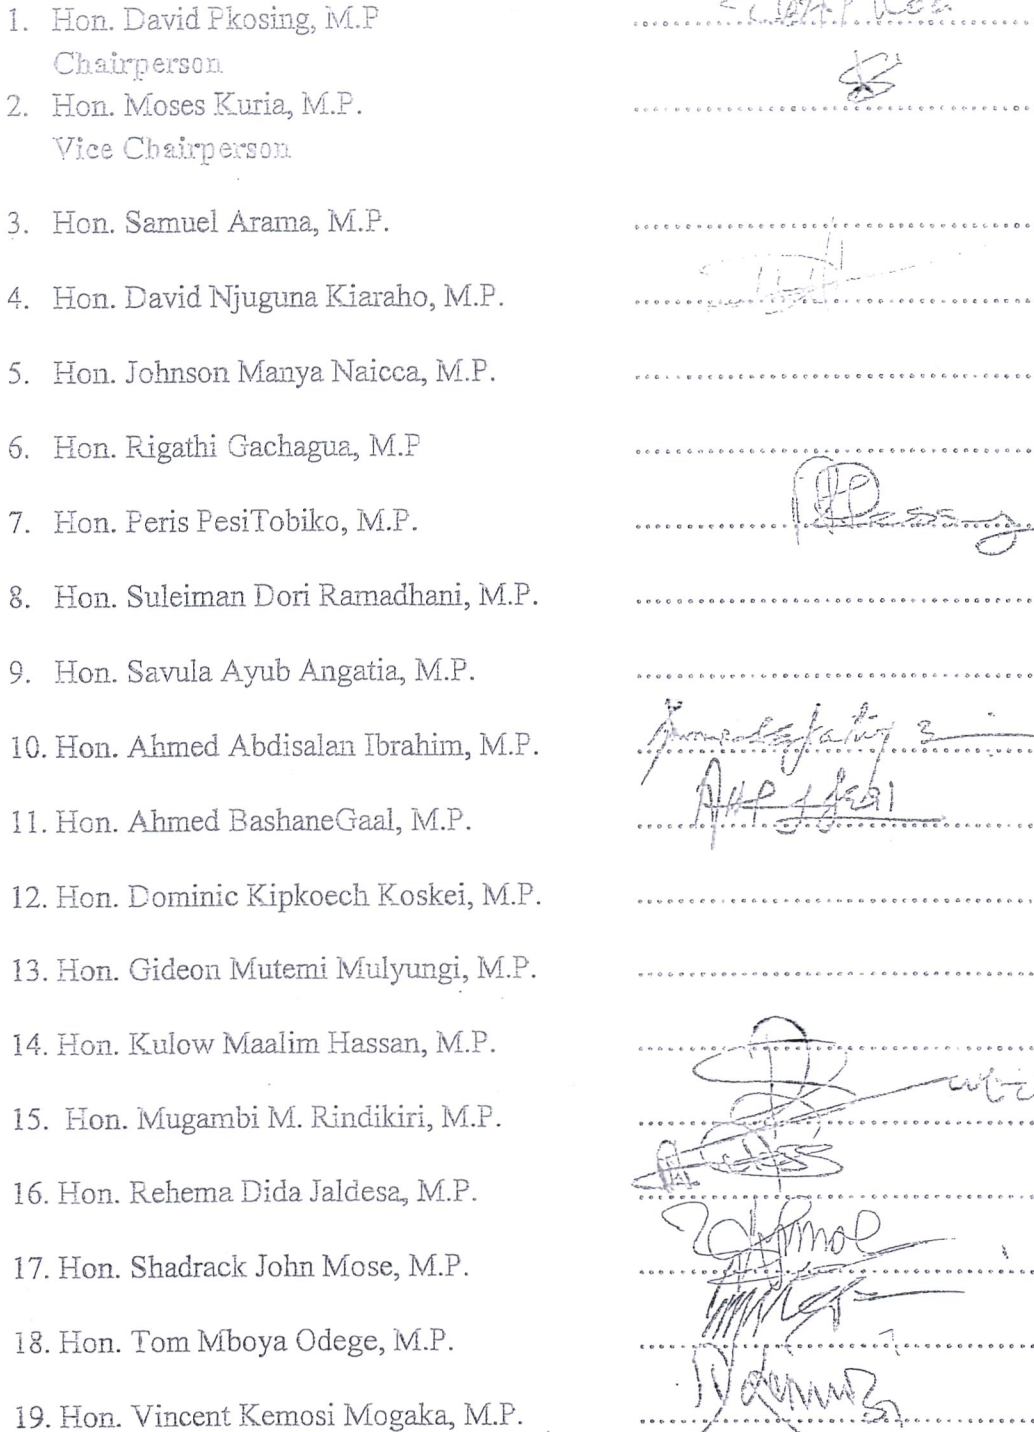 1. Hon. David Pkosing, M.P
Chairperson
2. Hon. Moses Kuria, M.P.
Vice Chairperson
3. Hon. Samuel Arama, M.P.
4. Hon. David Njuguna Kiaraho, M.P.
5. Hon. Johnson Manya Naicca, M.P.
6. Hon. Rigathi Gachagua, M.P
7. Hon. Peris PesiTobiko, M.P.
8. Hon. Suleiman Dori Ramadhani, M.P.
9. Hon. Savula Ayub Angatia, M.P.
10. Hon. Ahmed Abdisalan Ibrahim, M.P.
11. Hon. Ahmed BashaneGaal, M.P.
12. Hon. Dominic Kipkoech Koskei, M.P.
13. Hon. Gideon Mutemi Mulyungi, M.P.
14. Hon. Kulow Maalim Hassan, M.P.
15. Hon. Mugambi M. Rindikiri, M.P.
16. Hon. Rehema Dida Jaldesa, M.P.
17. Hon. Shadrack John Mose, M.P.
18. Hon. Tom Mboya Odege, M.P.
19. Hon. Vincent Kemosi Mogaka, M.P.